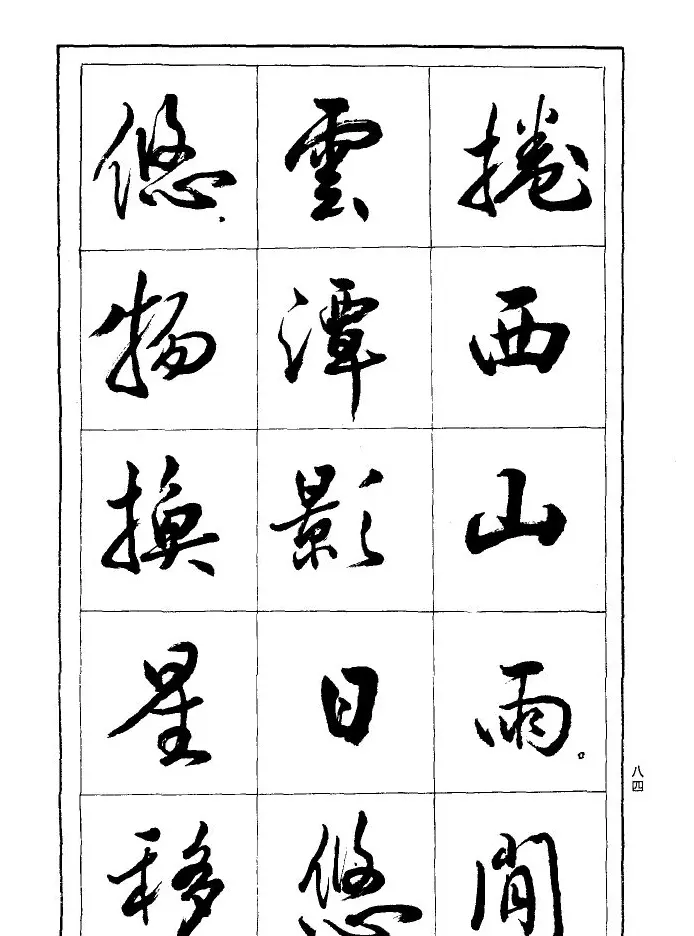 捲西山雨。閒
雲潭影日悠
悠.物換星移
八四